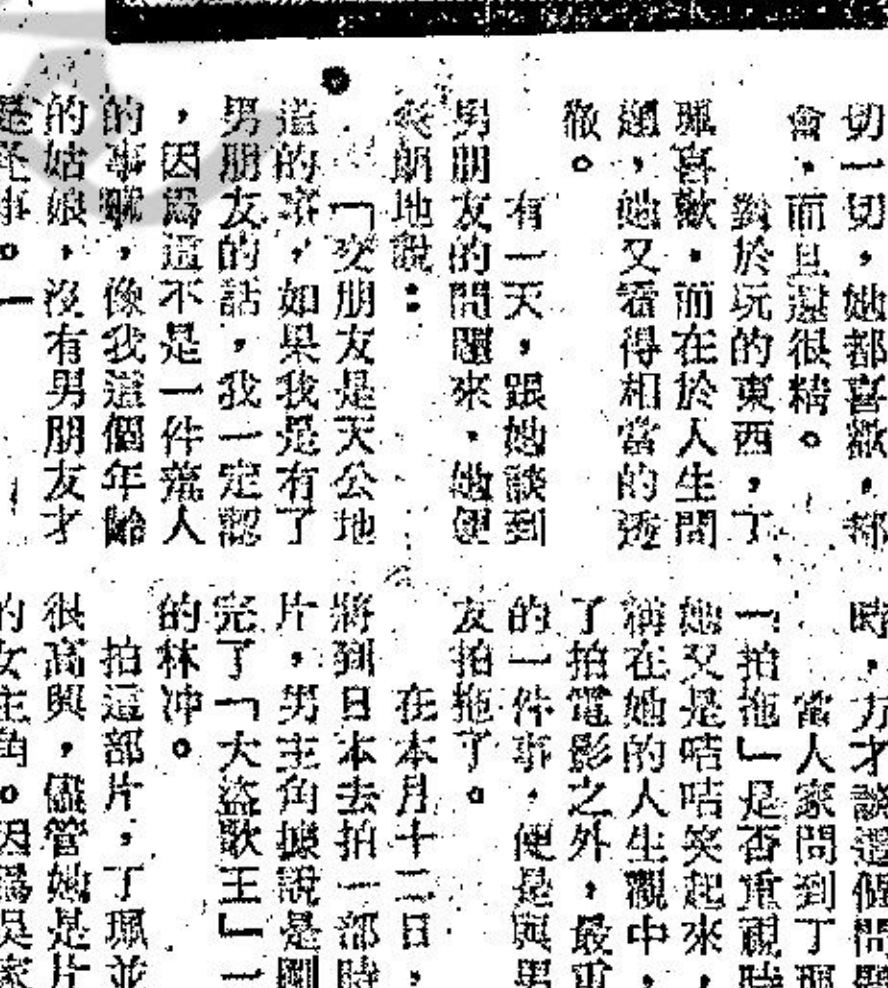 切一切，她都喜歡，都
會，而且還很精。
對於玩的東西，丁
珮喜歡，而在於人生問
題，她又看得相當的透
徹。
有一天，跟她談到
男朋友的問題來，她便
爽朗地說：
「交朋友是天公地
道的事，如果我是有了
男朋友的話，我一定認
，因爲這不是一件荒人
的事啊，像我這個年齡
的姑娘，沒有男朋友才
是死事。
時，方才談這個問題
當人家問到丁珮
「拍拖」是否重視時
她又是咭咭笑起來，
稱在她的人生觀中，
了拍電影之外，最重
的一件事，便是與男
友拍拖了。
在本月十二日，
將到日本去拍一部時
片，男主角據說是剛
完了「大盜歌王」一
的林冲。
拍這部片，丁珮並
很高興，儘管她是片
的女主角。因爲吳家